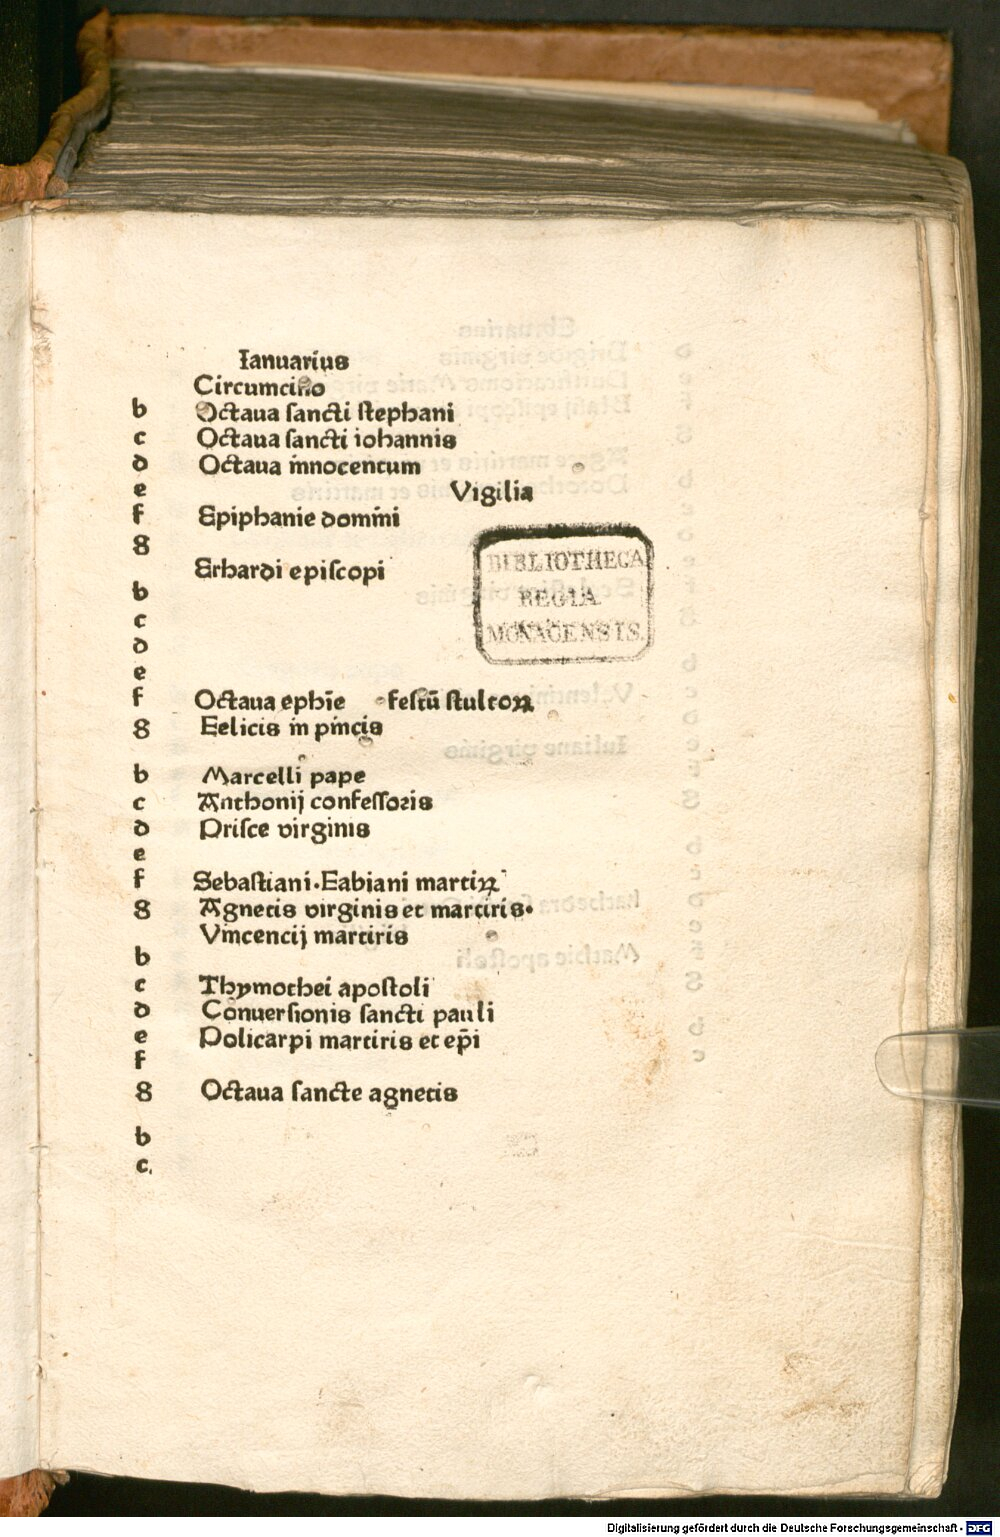 Ianuarius
Circumcisio
b Octaua sancti stephani
c Octaua sancti iohannis
d Octaua innocentum
e Vigilia
f Epiphanie domini
g
Erhardi episcopi
b
c
d
e
f Octaua ephīe festū stultoꝝ
g Felicis in pincis
b Marcelli pape
c Anthonij confessoris
d Prisce virginis
e
f Sebastiani. Fabiani martiꝝ
g Agnetis virginis et martiris.
Vincencij martiris
b
c Thymothei apostoli
d Conuersionis sancti pauli
e Policarpi martiris et ep̄i
f
g Octaua sancte agnetis
b
c.
BIBLIOTHECA
REGIA
MONACENSIS.
Digitalisierung gefördert durch die Deutsche Forschungsgemeinschaft - DFG